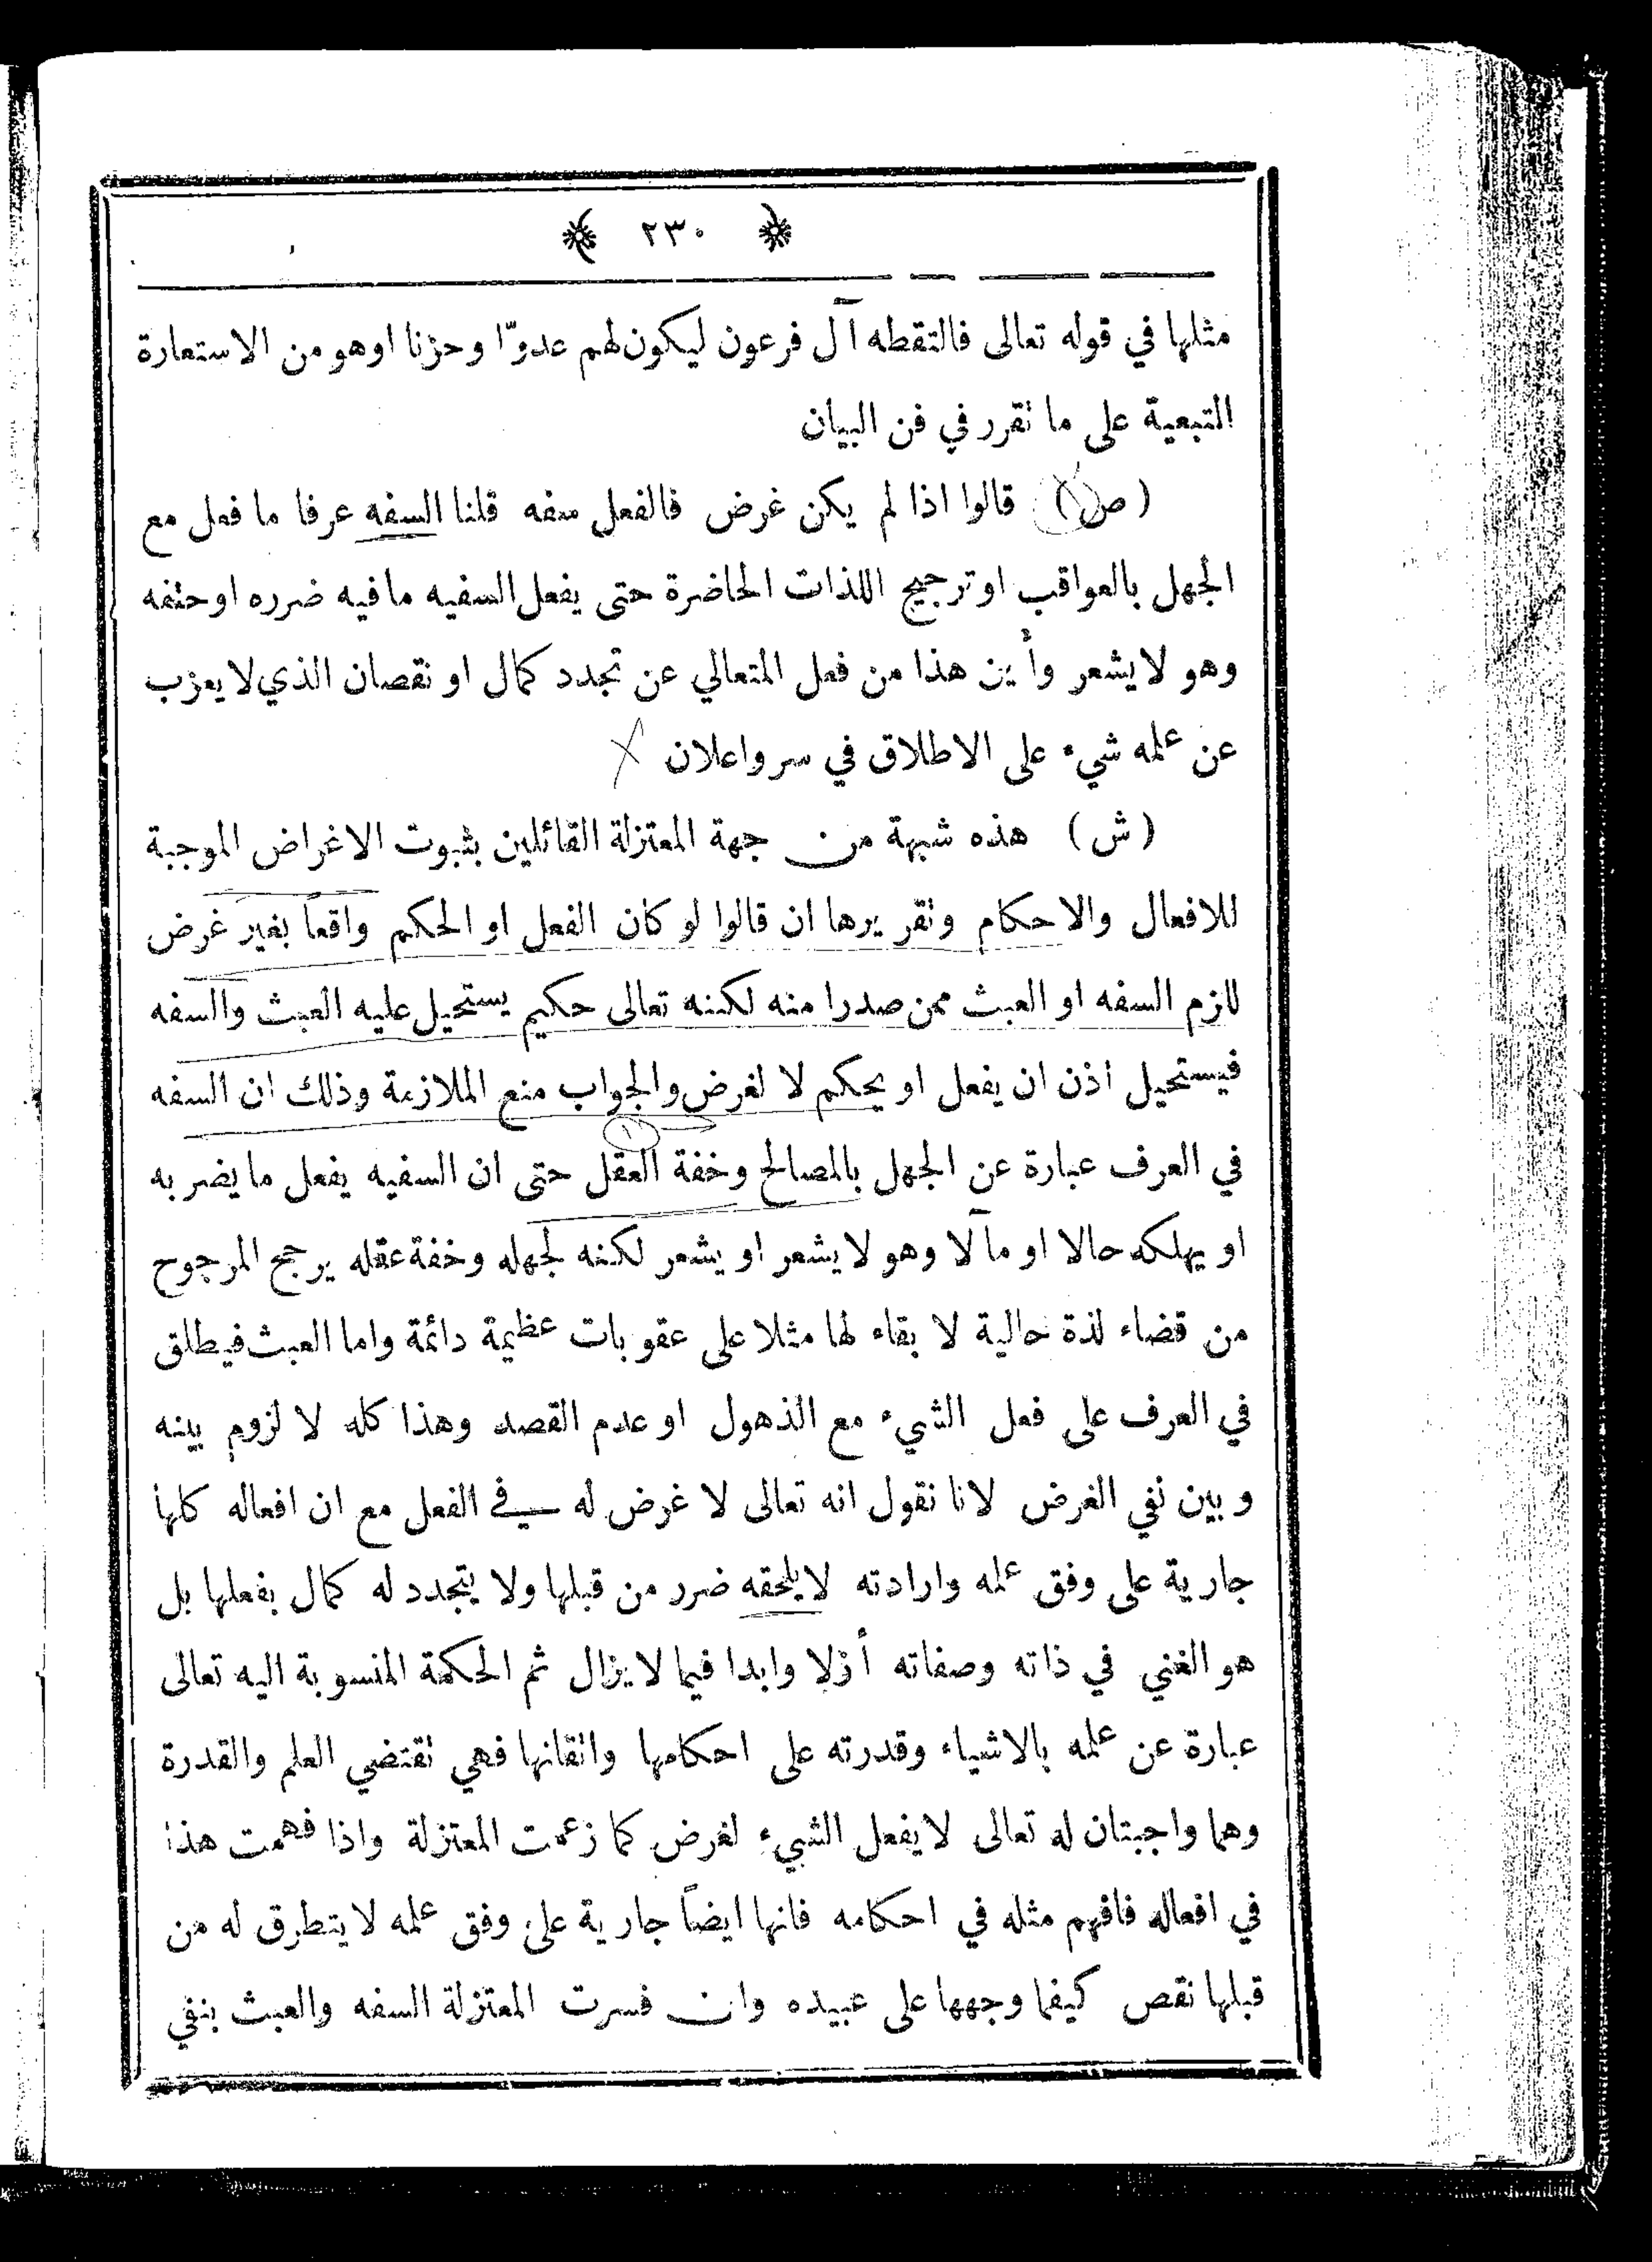 ٢٣٠
مثلها في قوله تعالى فالتقطه آل فرعون ليكون لهم عدوّا وحزنا او هو من الاستعارة
التبعية على ما تقرر في فن البيان
(ص) قالوا اذا لم يكن غرض فالفعل سفه قلنا السفه عرفا ما فعل مع
الجهل بالعواقب او ترجيح اللذات الحاضرة حتى يفعل السفيه ما فيه ضرره او حتفه
وهو لا يشعر وأين هذا من فعل المتعالي عن تجدد كمال او نقصان الذي لا يعزب
عن علمه شيء على الاطلاق في سر واعلان
(ش) هذه شبهة من جهة المعتزلة القائلين بثبوت الاغراض الموجبة
للافعال والاحكام وتقريرها ان قالوا لو كان الفعل او الحكم واقعاً بغير غرض
للزم السفه او العبث ممن صدرا منه لكنه تعالى حكيم يستحيل عليه العبث والسفه
فيستحيل اذن ان يفعل او يحكم لا لغرض والجواب منع الملازمة وذلك ان السفه
في العرف عبارة عن الجهل بالمصالح وخفة العقل حتى ان السفيه يفعل ما يضر به
او يهلكه حالا او مآلا وهو لا يشعر او يشعر لكنه لجهله وخفة عقله يرجح المرجوح
من قضاء لذة حالية لا بقاء لها مثلا على عقوبات عظيمة دائمة واما العبث فيطلق
في العرف على فعل الشيء مع الذهول او عدم القصد وهذا كله لا لزوم بينه
وبين نفي الغرض لانا نقول انه تعالى لا غرض له في الفعل مع ان افعاله كلها
جارية على وفق علمه وارادته لا يلحقه ضرر من قبلها ولا يتجدد له كمال بفعلها بل
هو الغني في ذاته وصفاته أزلا وابدا فيما لا يزال ثم الحكمة المنسوبة اليه تعالى
عبارة عن علمه بالاشياء وقدرته على احكامها واتقانها فهي تقتضي العلم والقدرة
وهما واجبتان له تعالى لا يفعل الشيء لغرض كما زعمت المعتزلة واذا فهمت هذا
في افعاله فافهم مثله في احكامه فانها ايضاً جارية على وفق علمه لا يتطرق له من
قبلها نقص كيفما وجهها على عبيده وان فسرت المعتزلة السفه والعبث بنفي